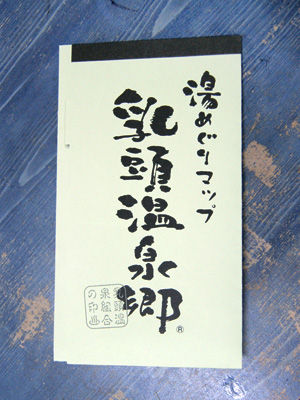 湯めぐりマップ
乳頭温泉郷®
乳頭温
泉組合
の印